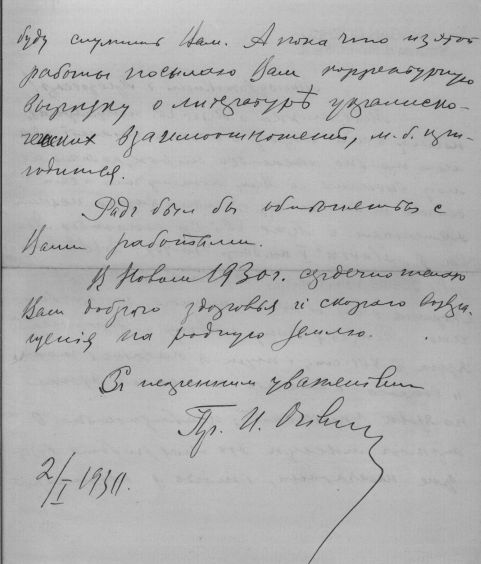 буду служить Вам. А пока что из этой
работы посылаю Вам корректурную
вырѣзку о литературѣ украинско-
чешских взаимоотношений, м. б. при-
годится.
Радъ был бы обменяться с
Вами работами.
В Новом 1930 г. сердечно желаю
Вам доброго здоровья и скораго возвра-
щенія на родную землю.
Съ искренним уваженіем
Пр. И. Огіенко
2/I 1930.